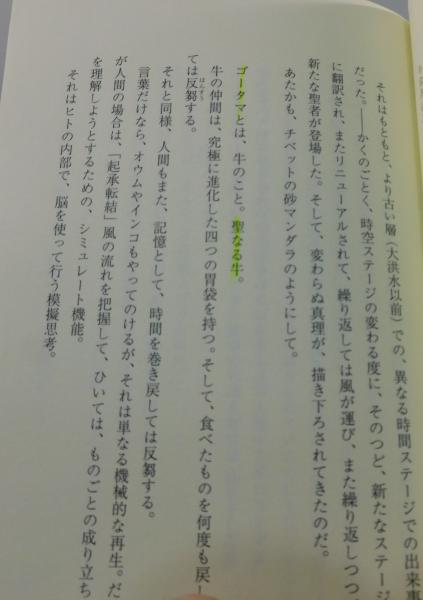 それはもともと、より古い層(大洪水以前)での、異なる時間ステージでの出来事
だった。――かくのごとく、時空ステージの変わる度に、そのつど、新たなステージ
に翻訳され、またリニューアルされて、繰り返しては風が運び、また繰り返しつつ、
新たな聖者が登場した。そして、変わらぬ真理が、描き下ろされてきたのだ。
あたかも、チベットの砂マンダラのようにして。
ゴータマとは、牛のこと。聖なる牛。
牛の仲間は、究極に進化した四つの胃袋を持つ。そして、食べたものを何度も戻し
ては反芻する。
はんすう
それと同様、人間もまた、記憶として、時間を巻き戻しては反芻する。
言葉だけなら、オウムやインコもやってのけるが、それは単なる機械的な再生。だ
が人間の場合は、「起承転結」風の流れを把握して、ひいては、ものごとの成り立ち
を理解しようとするための、シミュレート機能。
それはヒトの内部で、脳を使って行う模擬思考。